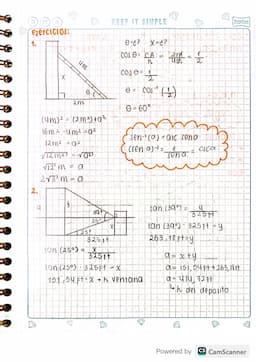 KEEP IT SIMPLE
EJERCICIOS:
1.
θ=¿? x=¿?
cos θ = CA/h = 2m/4m = 1/2
cos θ = 1/2
θ = cos⁻¹ (1/2)
θ = 60°
4m
x
θ
2m
(4m)² = (2m)² + a²
16m² - 4m² = a²
12m² = a²
√12m² = √a²
√12 m = a
2√3 m = a
sen⁻¹(a) = arc sen a
(sen a)⁻¹ = 1/sen a = csc a
2.
39°
25°
x
325ft
tan (39°) = y/325ft
tan (39°) · 325ft = y
263.18ft = y
tan (25°) = x/325ft
tan (25°) · 325ft = x
151.54ft = x → h ventana
a = x + y
a = 151.54ft + 263.18ft
a = 414.72ft
↳ h del deposito
Powered by CS CamScanner